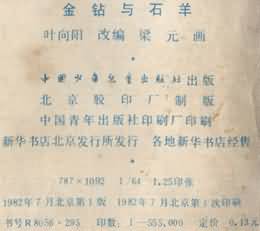 金钻与石羊
叶向阳 改编 梁元 画
中国少年儿童出版社出版
北京胶印厂制版
中国青年出版社印刷厂印刷
新华书店北京发行所发行 各地新华书店经售
787×1092 1/64 1.25印张
1982年7月北京第1版 1982年7月北京第1次印刷
书号R8056·295 印数:1—555,000 定价0.13元